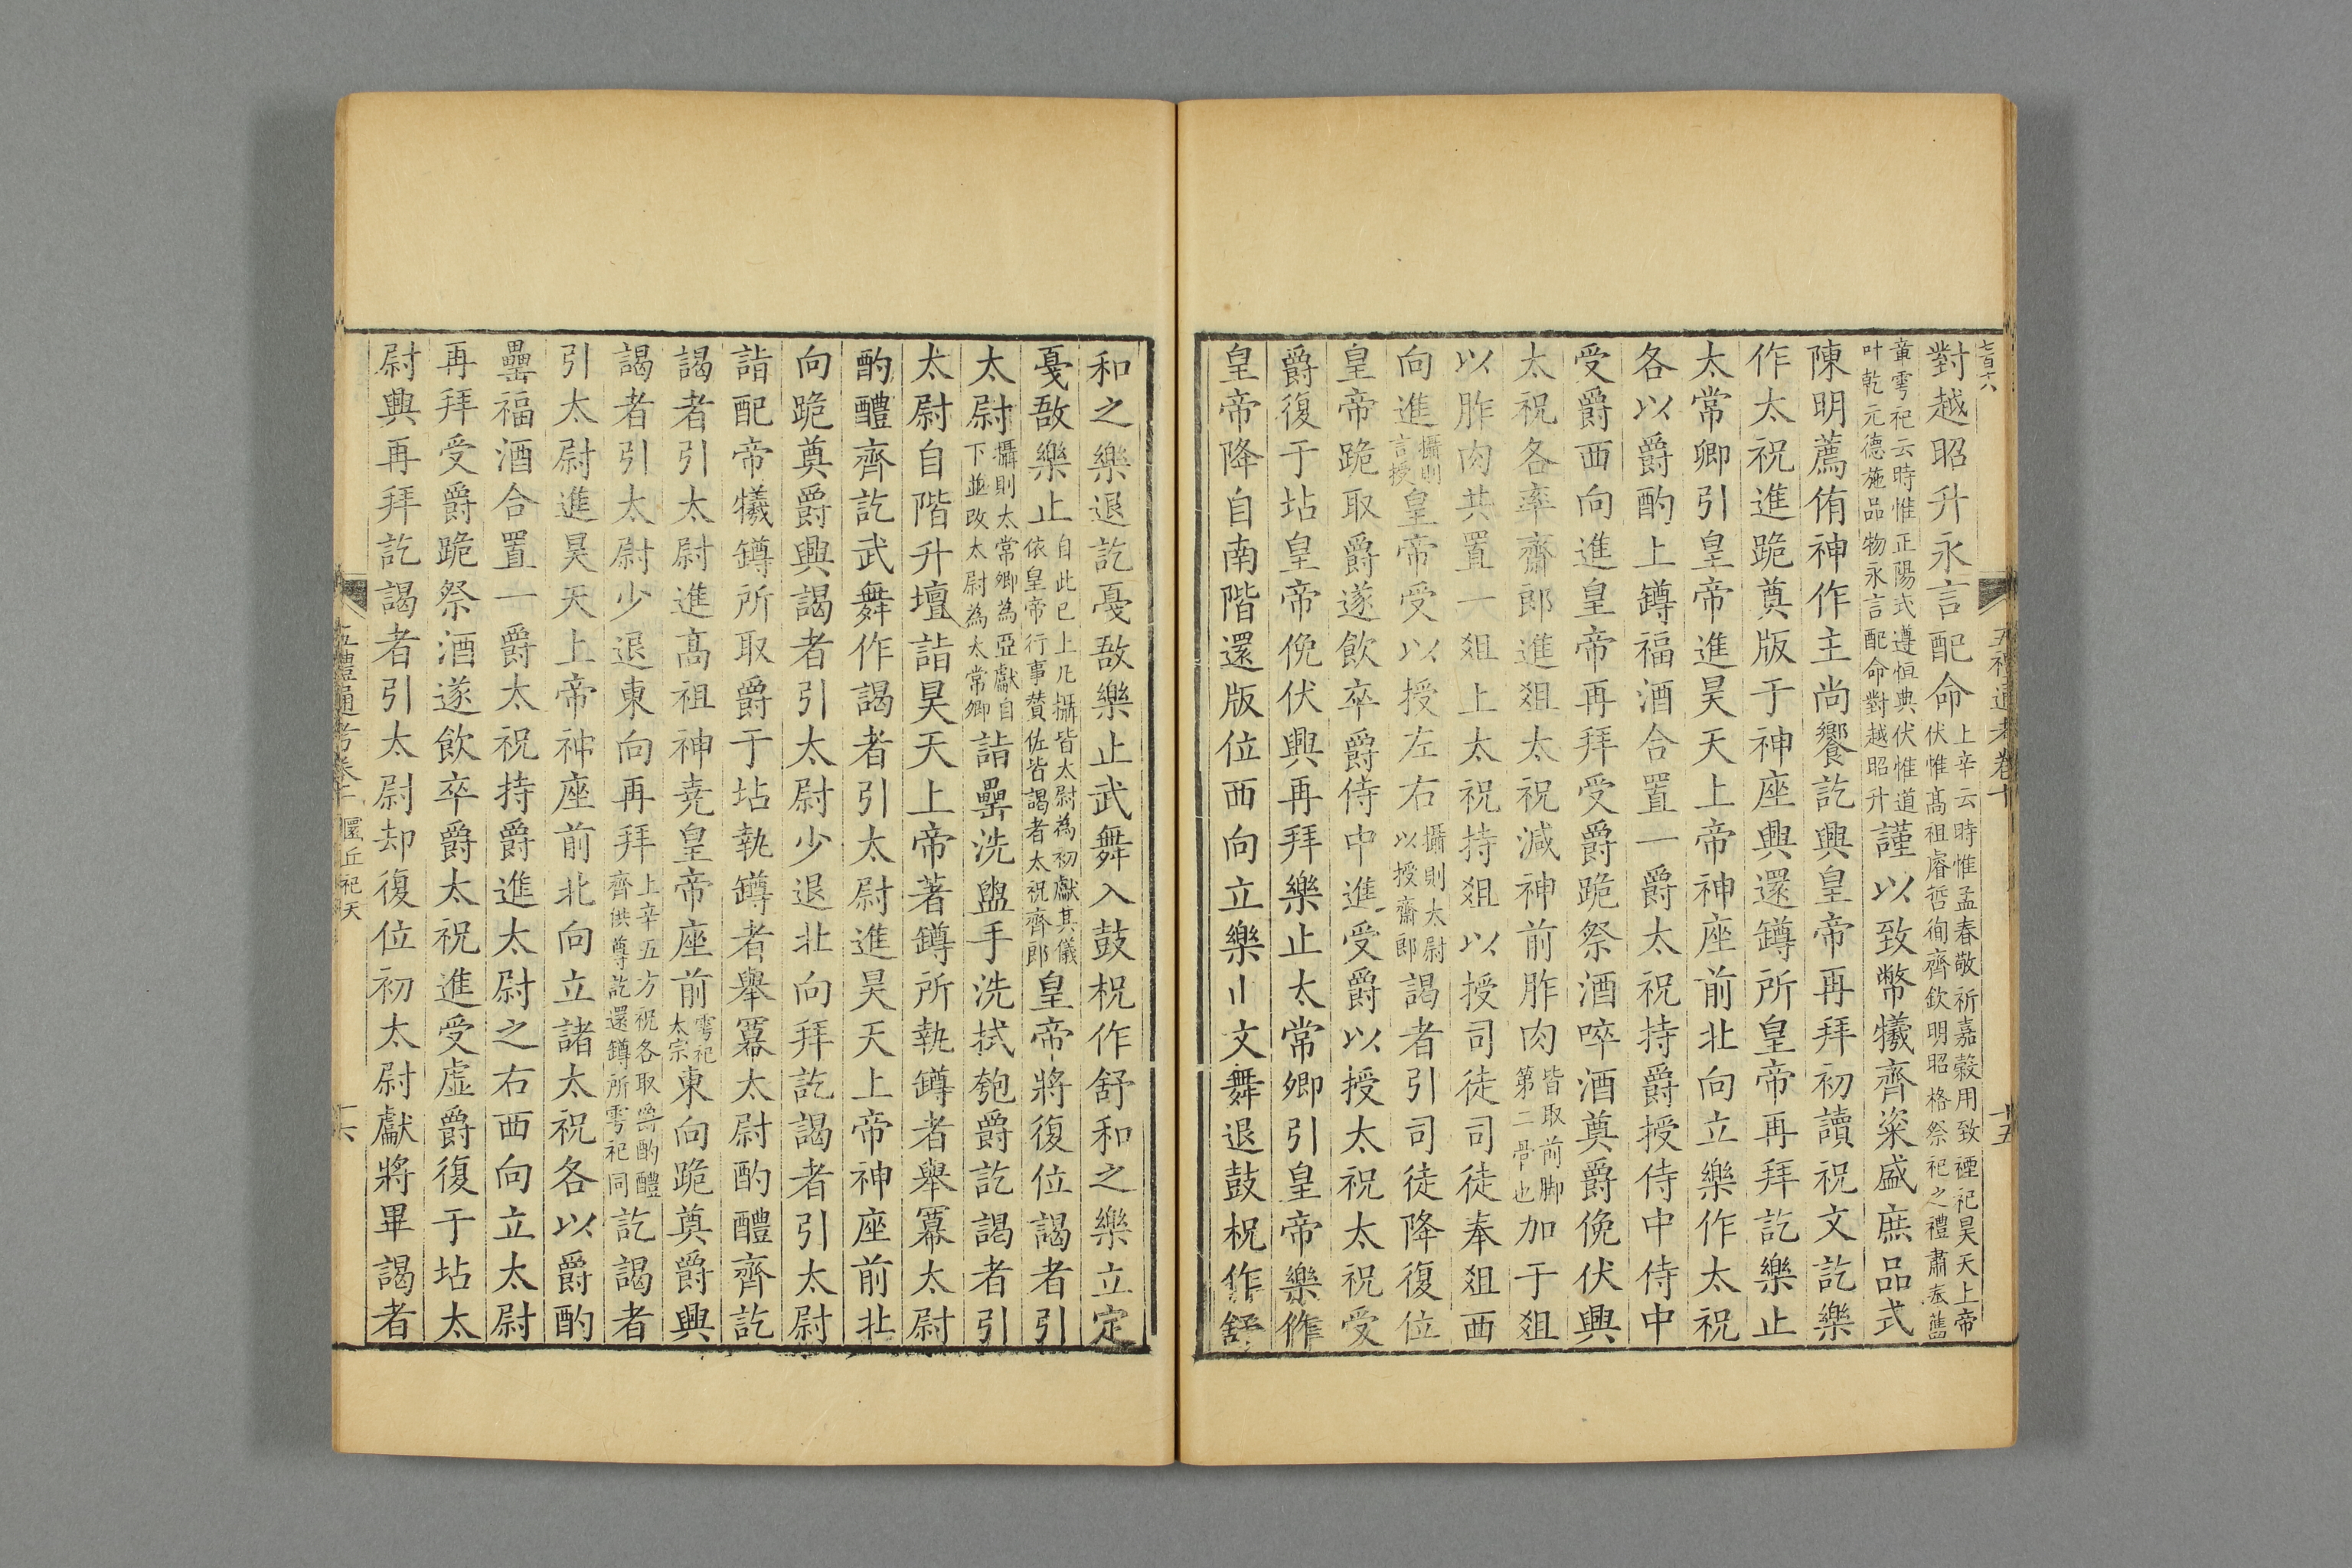 五禮通考卷十
十五
對越昭升永言配命上辛云時惟孟春敬祈嘉穀用致禋祀昊天上帝伏惟髙祖睿哲徇齊欽明昭格祭祀之禮肅奉舊
章雩祀云時惟正陽式遵恒典伏惟道叶乾元德施品物永言配命對越昭升謹以致幣犧齊粢盛庶品式
陳明薦侑神作主尚饗訖興皇帝再拜初讀祝文訖樂
作太祝進跪奠版于神座興還罇所皇帝再拜訖樂止
太常卿引皇帝進昊天上帝神座前北向立樂作太祝
各以爵酌上罇福酒合置一爵太祝持爵授侍中侍中
受爵西向進皇帝再拜受爵跪祭酒啐酒奠爵俛伏興
太祝各率齋郎進爼太祝減神前胙肉皆取前脚第二骨也加于爼
以胙肉共置一爼上太祝持爼以授司徒司徒奉爼西
向進攝則言授皇帝受以授左右攝則太尉以授齋郎謁者引司徒降復位
皇帝跪取爵遂飲卒爵侍中進受爵以授太祝太祝受
爵復于坫皇帝俛伏興再拜樂止太常卿引皇帝樂作
皇帝降自南階還版位西向立樂文舞退鼓柷作舒
和之樂退訖戞敔樂止武舞入鼓柷作舒和之樂立定
戞敔樂止自此已上凡攝皆太尉為初獻其儀依皇帝行事賛佐皆謁者太祝齊郎皇帝將復位謁者引
太尉攝則太常卿為亞獻自下並改太尉為太常卿詣罍洗盥手洗拭匏爵訖謁者引
太尉自階升壇詣昊天上帝著罇所執罇者舉冪太尉
酌醴齊訖武舞作謁者引太尉進昊天上帝神座前北
向跪奠爵興謁者引太尉少退北向拜訖謁者引太尉
詣配帝犧罇所取爵于坫執罇者舉冪太尉酌醴齊訖
謁者引太尉進髙祖神堯皇帝座前雩祀太宗東向跪奠爵興
謁者引太尉少退東向再拜上辛五方祝各取爵酌醴齊供尊訖還罇所雩祀同訖謁者
引太尉進昊天上帝神座前北向立諸太祝各以爵酌
罍福酒合置一爵太祝持爵進太尉之右西向立太尉
再拜受爵跪祭酒遂飲卒爵太祝進受虛爵復于坫太
尉興再拜訖謁者引太尉却復位初太尉獻將畢謁者
五禮通考卷十 圜丘祀天
十六